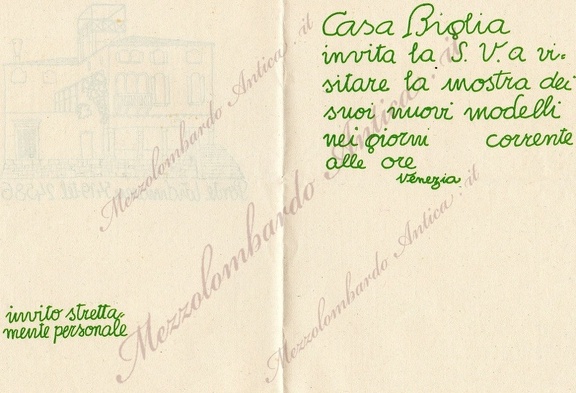 Casa Biglia
invita la S. V. a vi-
sitare la mostra dei
suoi nuovi modelli
nei giorni corrente
alle ore
Venezia
invito stretta-
mente personale
Mezzolombardo Antica . it
Mezzolombardo Antica . it
Mezzolombardo Antica . it